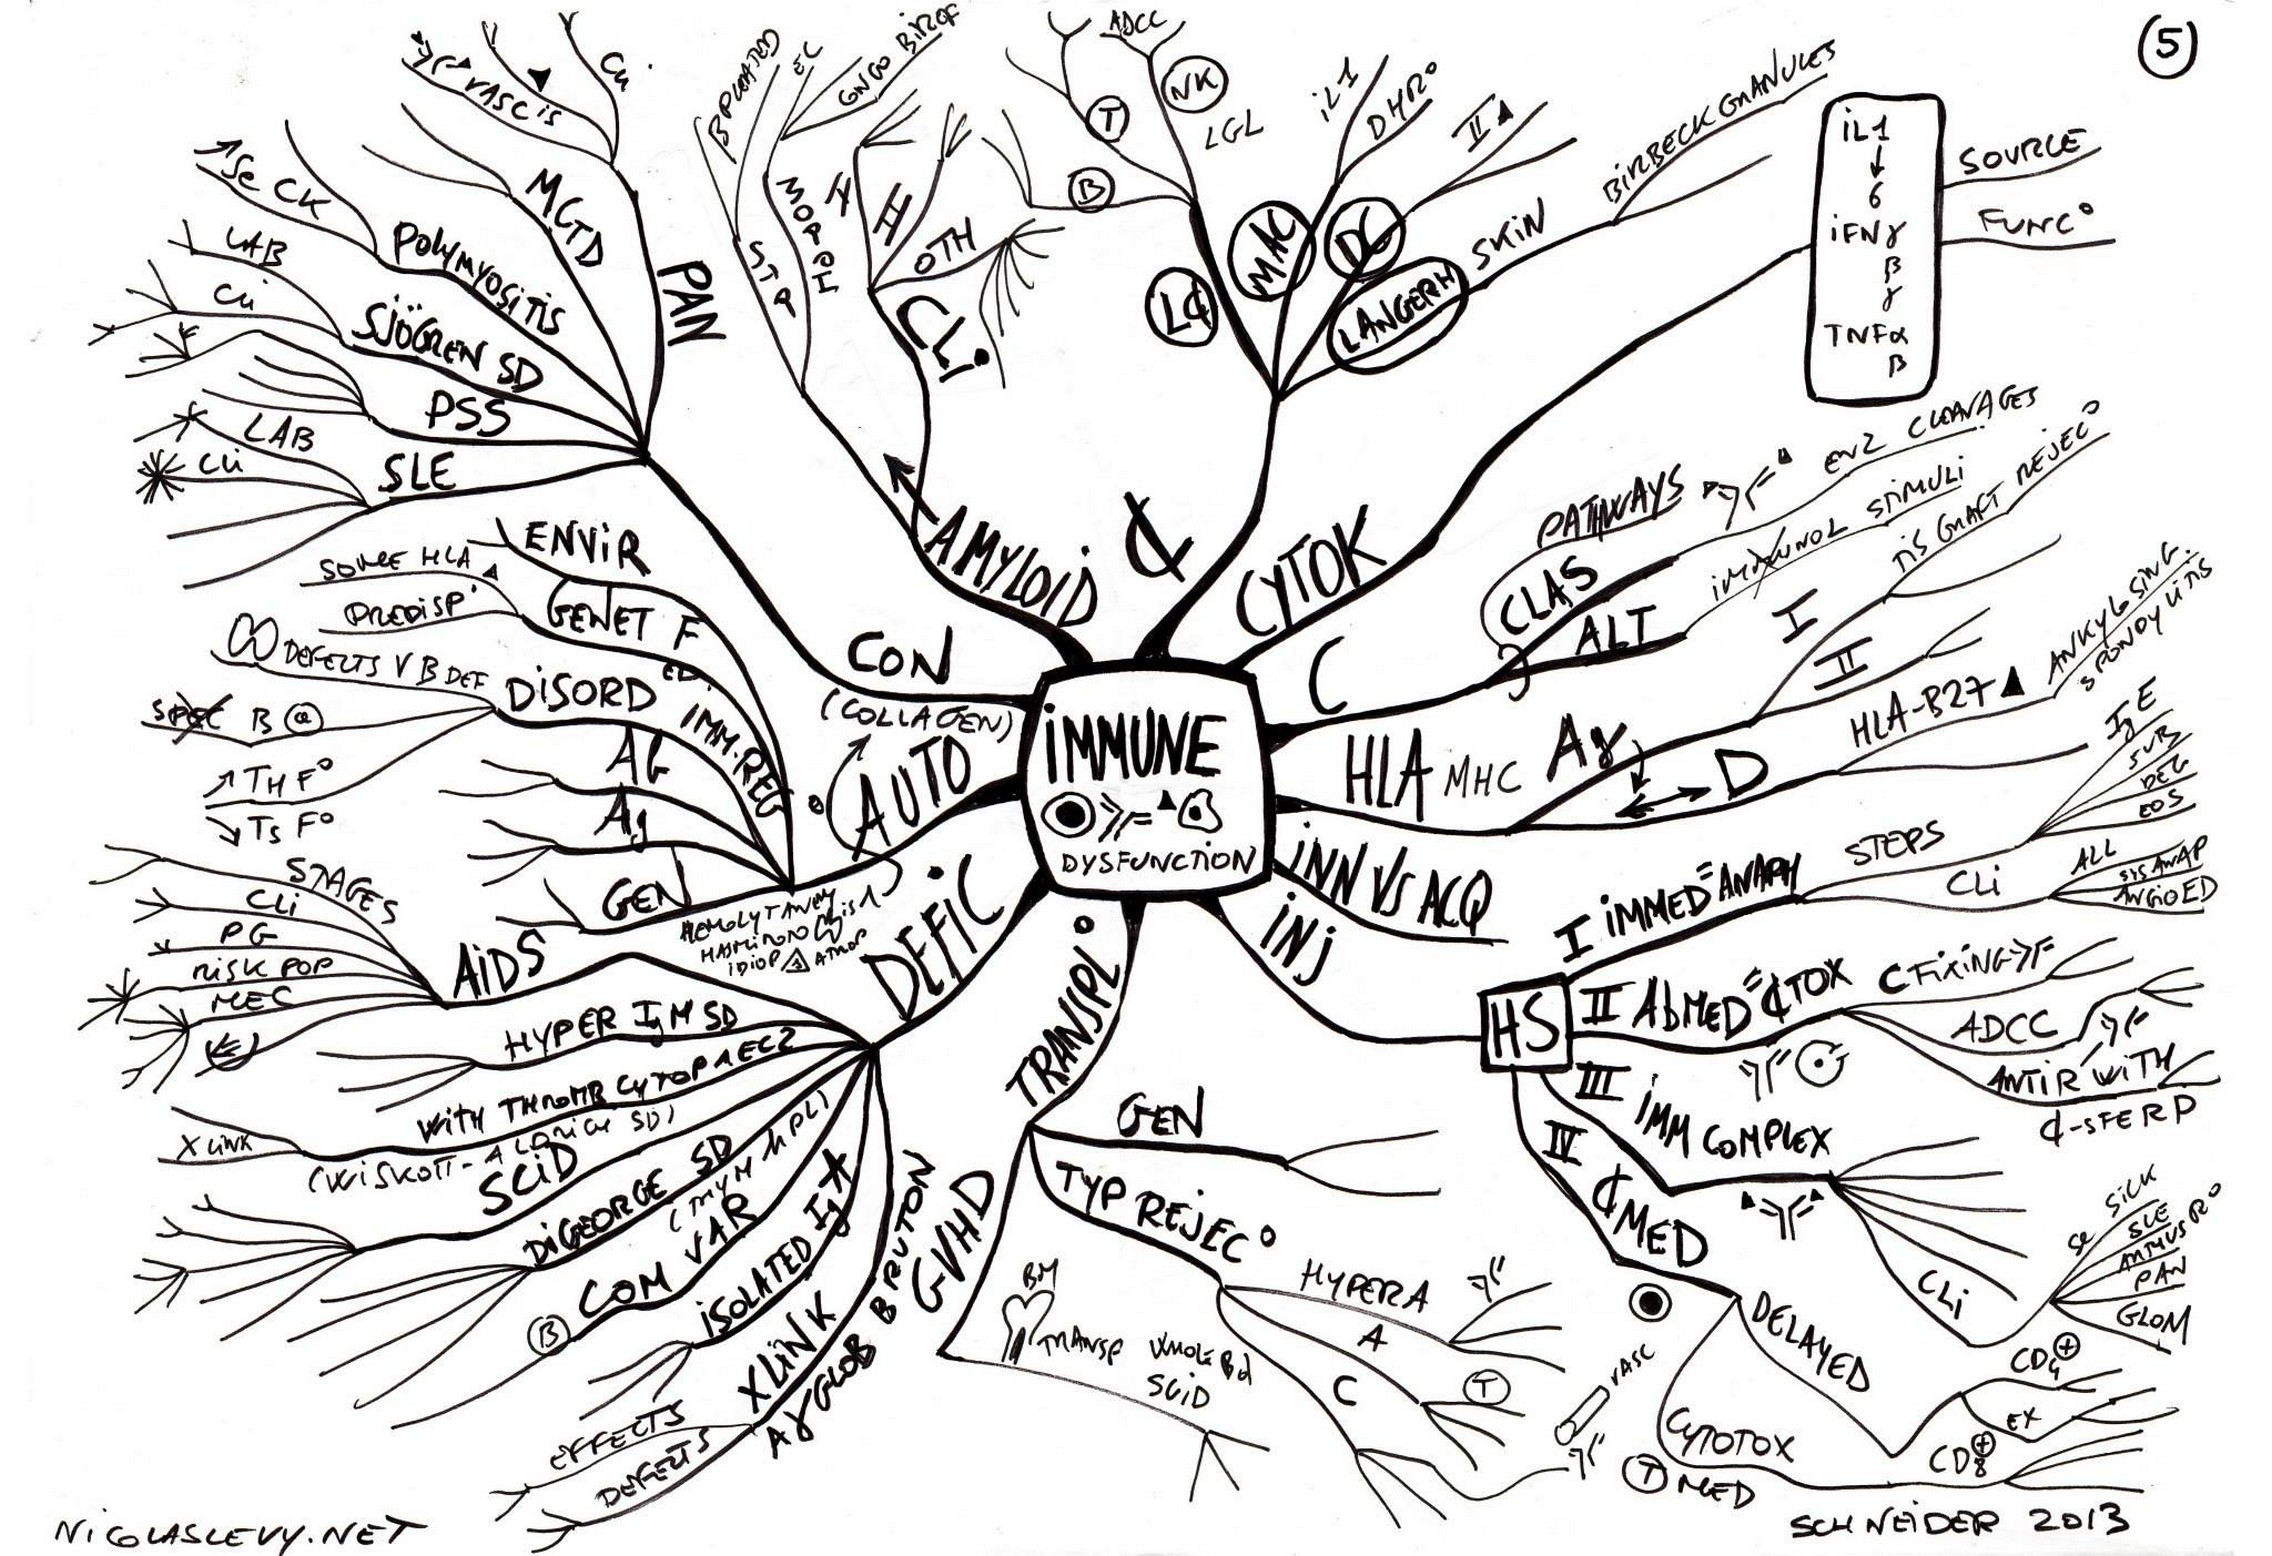 5
IMMUNE
DYSFUNCTION
¢
LC
T
B
NK
ADCC
LGL
MAC
IL1
DHR°
DC
II
LANGERH
SKIN
BIRBECK GRANULES
CYTOK
IL1
↓
6
IFNγ
β
γ
TNFα
β
SOURCE
FUNC°
C
CLAS
PATHWAYS
ENZ CLEAVAGES
ALT
IMMUNOL STIMULI
HLA MHC
Aγ
I
TIS GRAFT REJEC°
II
D
HLA-B27
ANKYLOSING
SPONDYLITIS
INN VS ACQ
INJ
HS
I IMMED=ANAPH
STEPS
IgE
SUB
DEG
EOS
CLI
ALL
SYS ANAP
ANGIOED
II Ab MED=¢TOX
C FIXING
ADCC
ANTIR WITH
¢-SFERP
III IMM COMPLEX
CLI
SE SICK
SLE
ARTHUS R°
PAN
GLOM
IV ¢ MED
DELAYED
CD4+
EX
CD8+
CYTOTOX
T MED
TRANSPL°
GEN
TYP REJEC°
HYPERA
A
T
C
VASC
GVHD
BM
TRANSP
WHOLE Bd
SCID
DEFIC
AIDS
STAGES
CLI
PG
RISK POP
MEC
HYPER IgM SD
WITH THROMB CYTOP A ECZ
(WISKOTT-ALDRICH SD)
X LINK
SCID
DIGEORGE SD
(THYM HPL)
COM VAR
B
ISOLATED IgA
XLINK
AγGLOB BRUTON
EFFECTS
DEFECTS
AUTO
ENVIR
GENET F
SOME HLA
PREDISP
DISORD
ED
IMM. REG
DEFECTS V B DEF
SPEC B @
↗ TH F°
↘ Ts F°
Ab
Ag
GEN
HEMOLYT ANEMY
IDIOP
ATROP
CON
(COLLAGEN)
PAN
Cli
VASCIS
MCTD
POLYMYOSITIS
↗ Se CK
SJÖGREN SD
LAB
Cli
PSS
SLE
LAB
Cli
AMYLOID
STR
BPLEATED
MORPH
EC
CNGO BIROF
CLI
X
II
OTH
NICOLASLEVY.NET
SCHNEIDER 2013